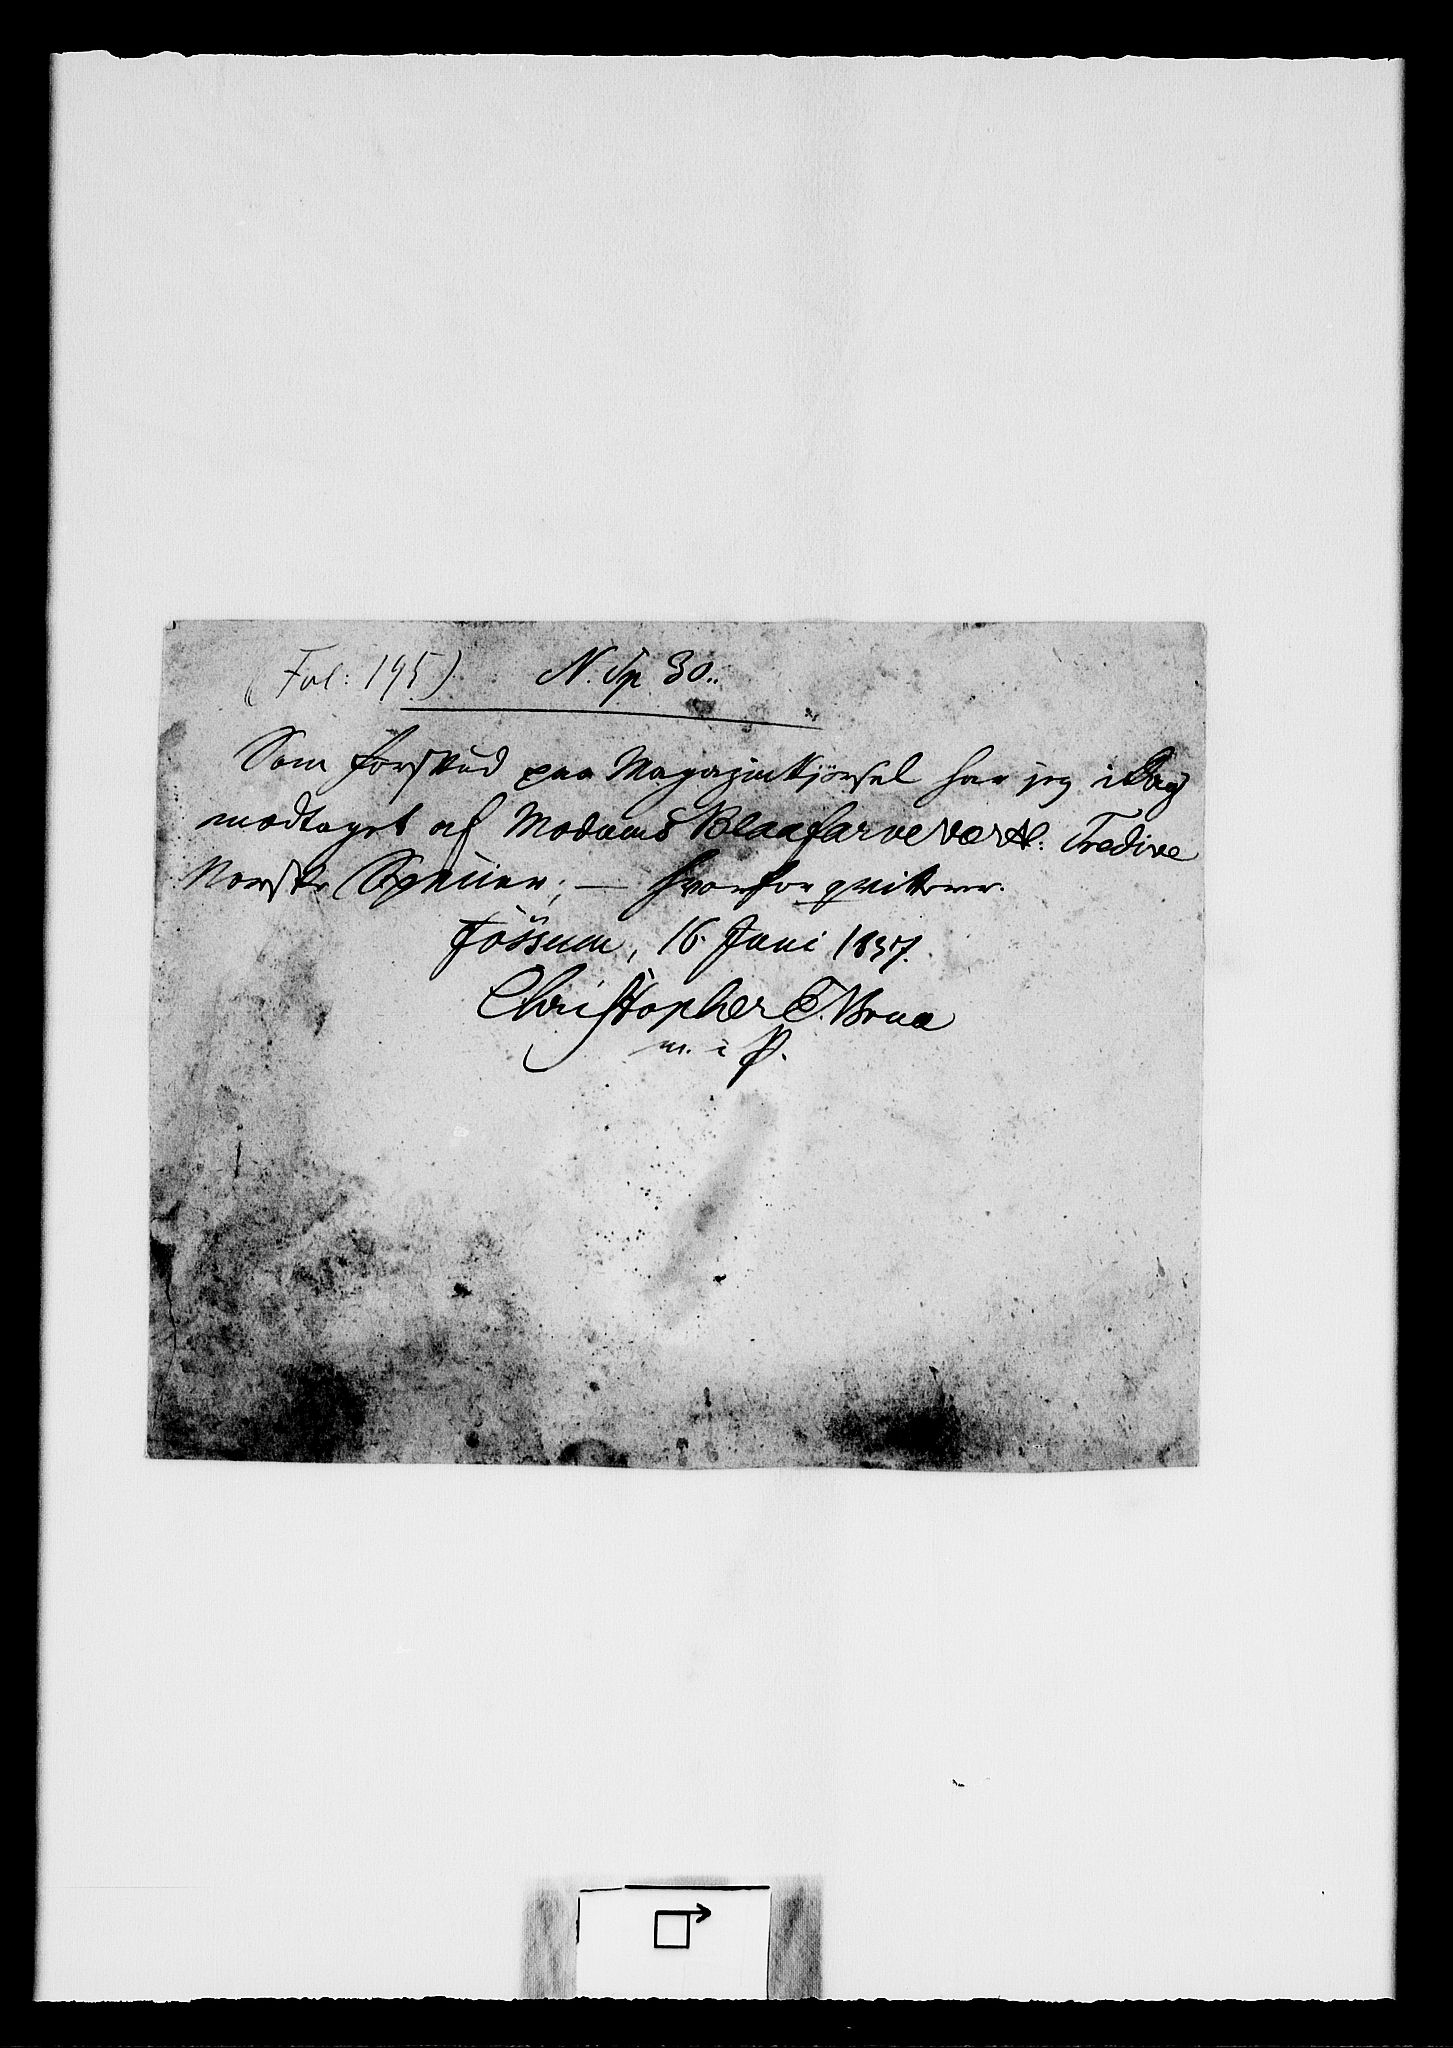 (Fol: 195) N. Sp 30..
Som Forskud paa Magazinkjørsel har jeg i Dag
modtaget af Modums Blaafarveværk: Tredive
Norske Specier; — hvorfor qvitterer.
Fossum, 16 Juni 1837.
Christopher T. Braa
m. i P.